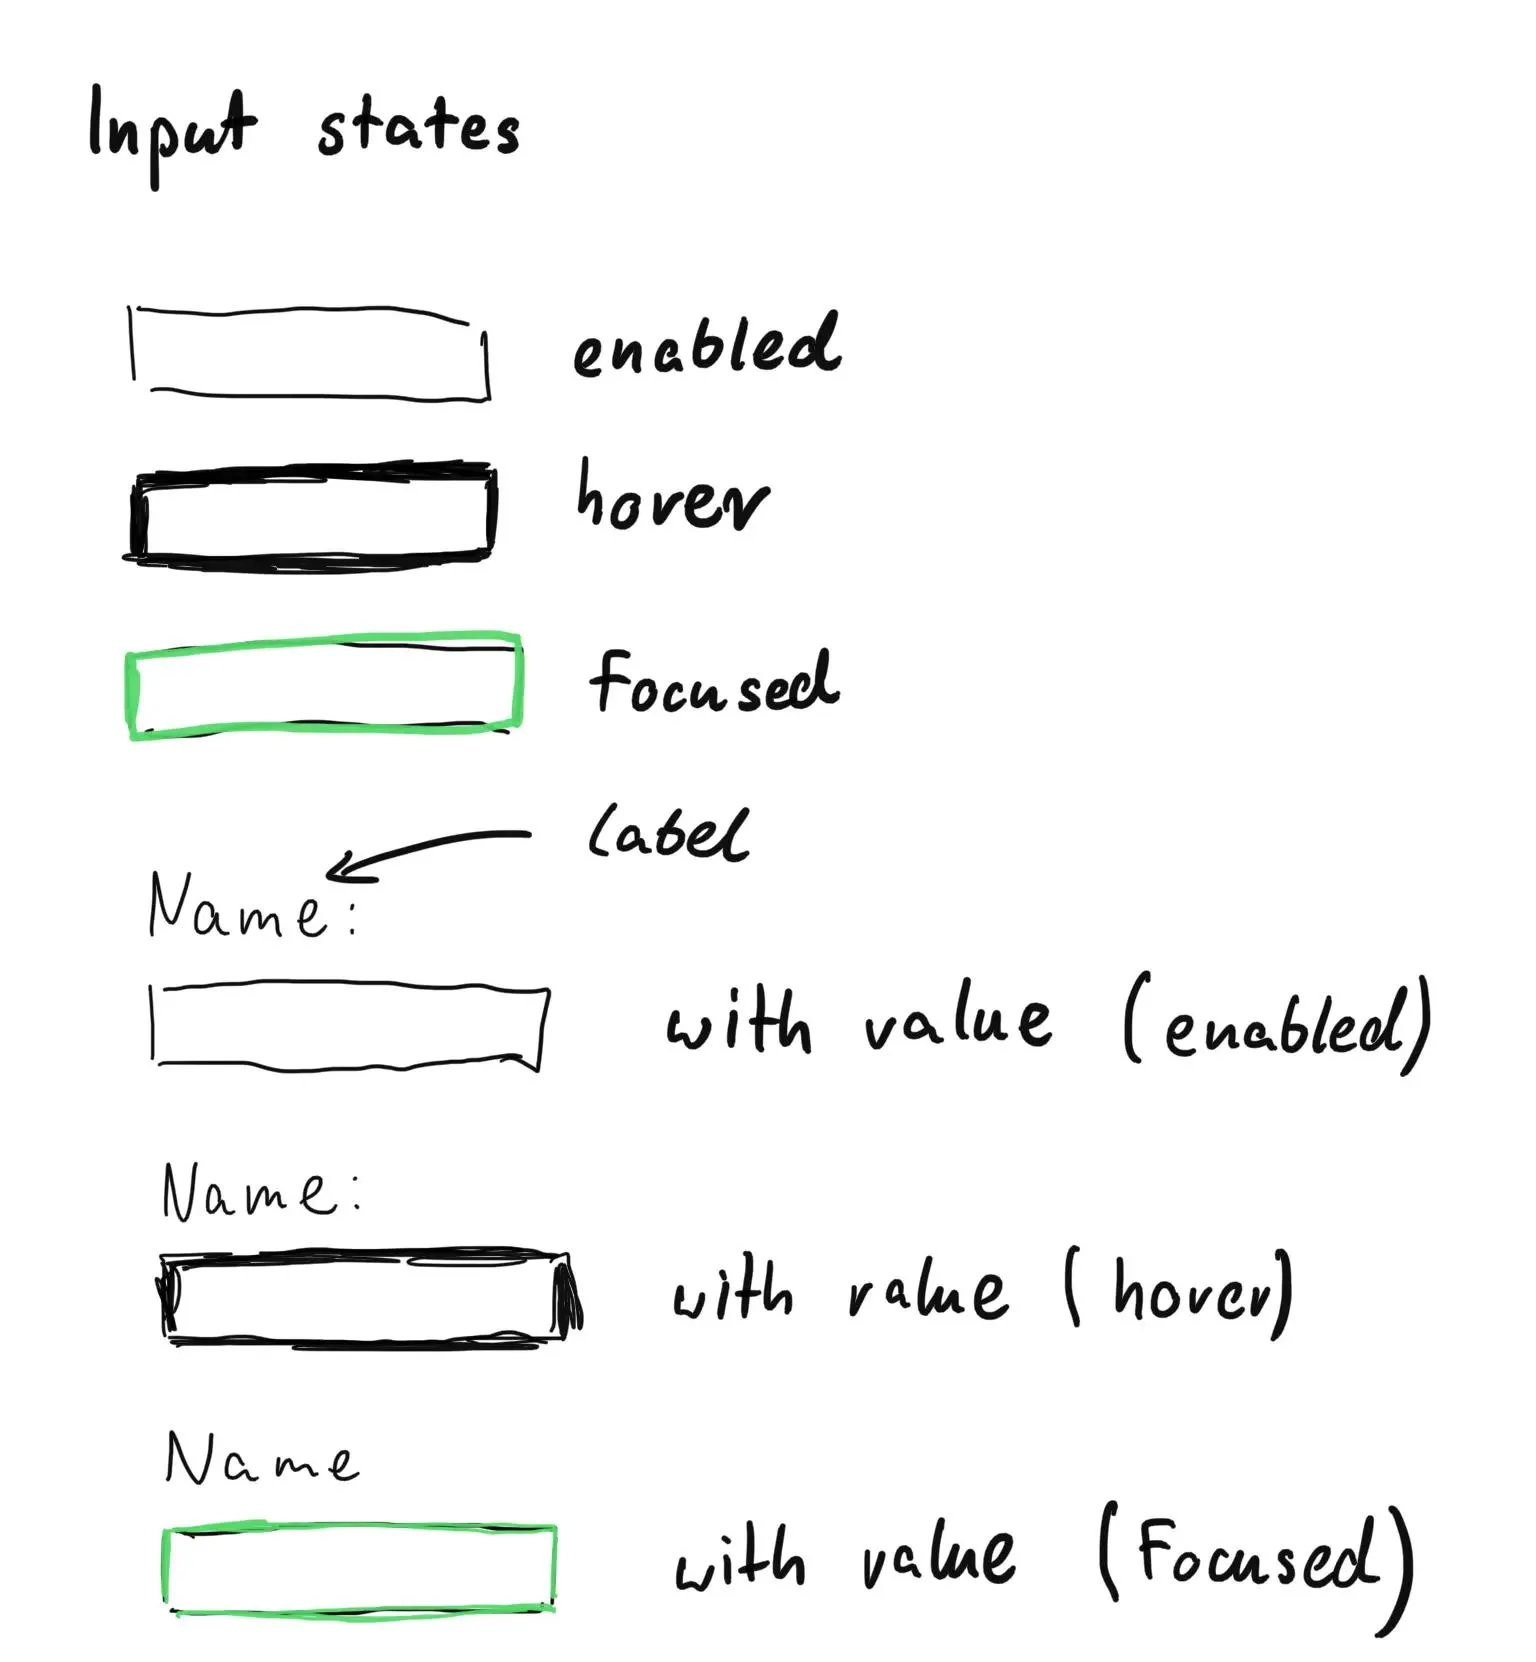 Input states
enabled
hover
Focused
label
Name:
with value (enabled)
Name:
with value (hover)
Name
with value (Focused)